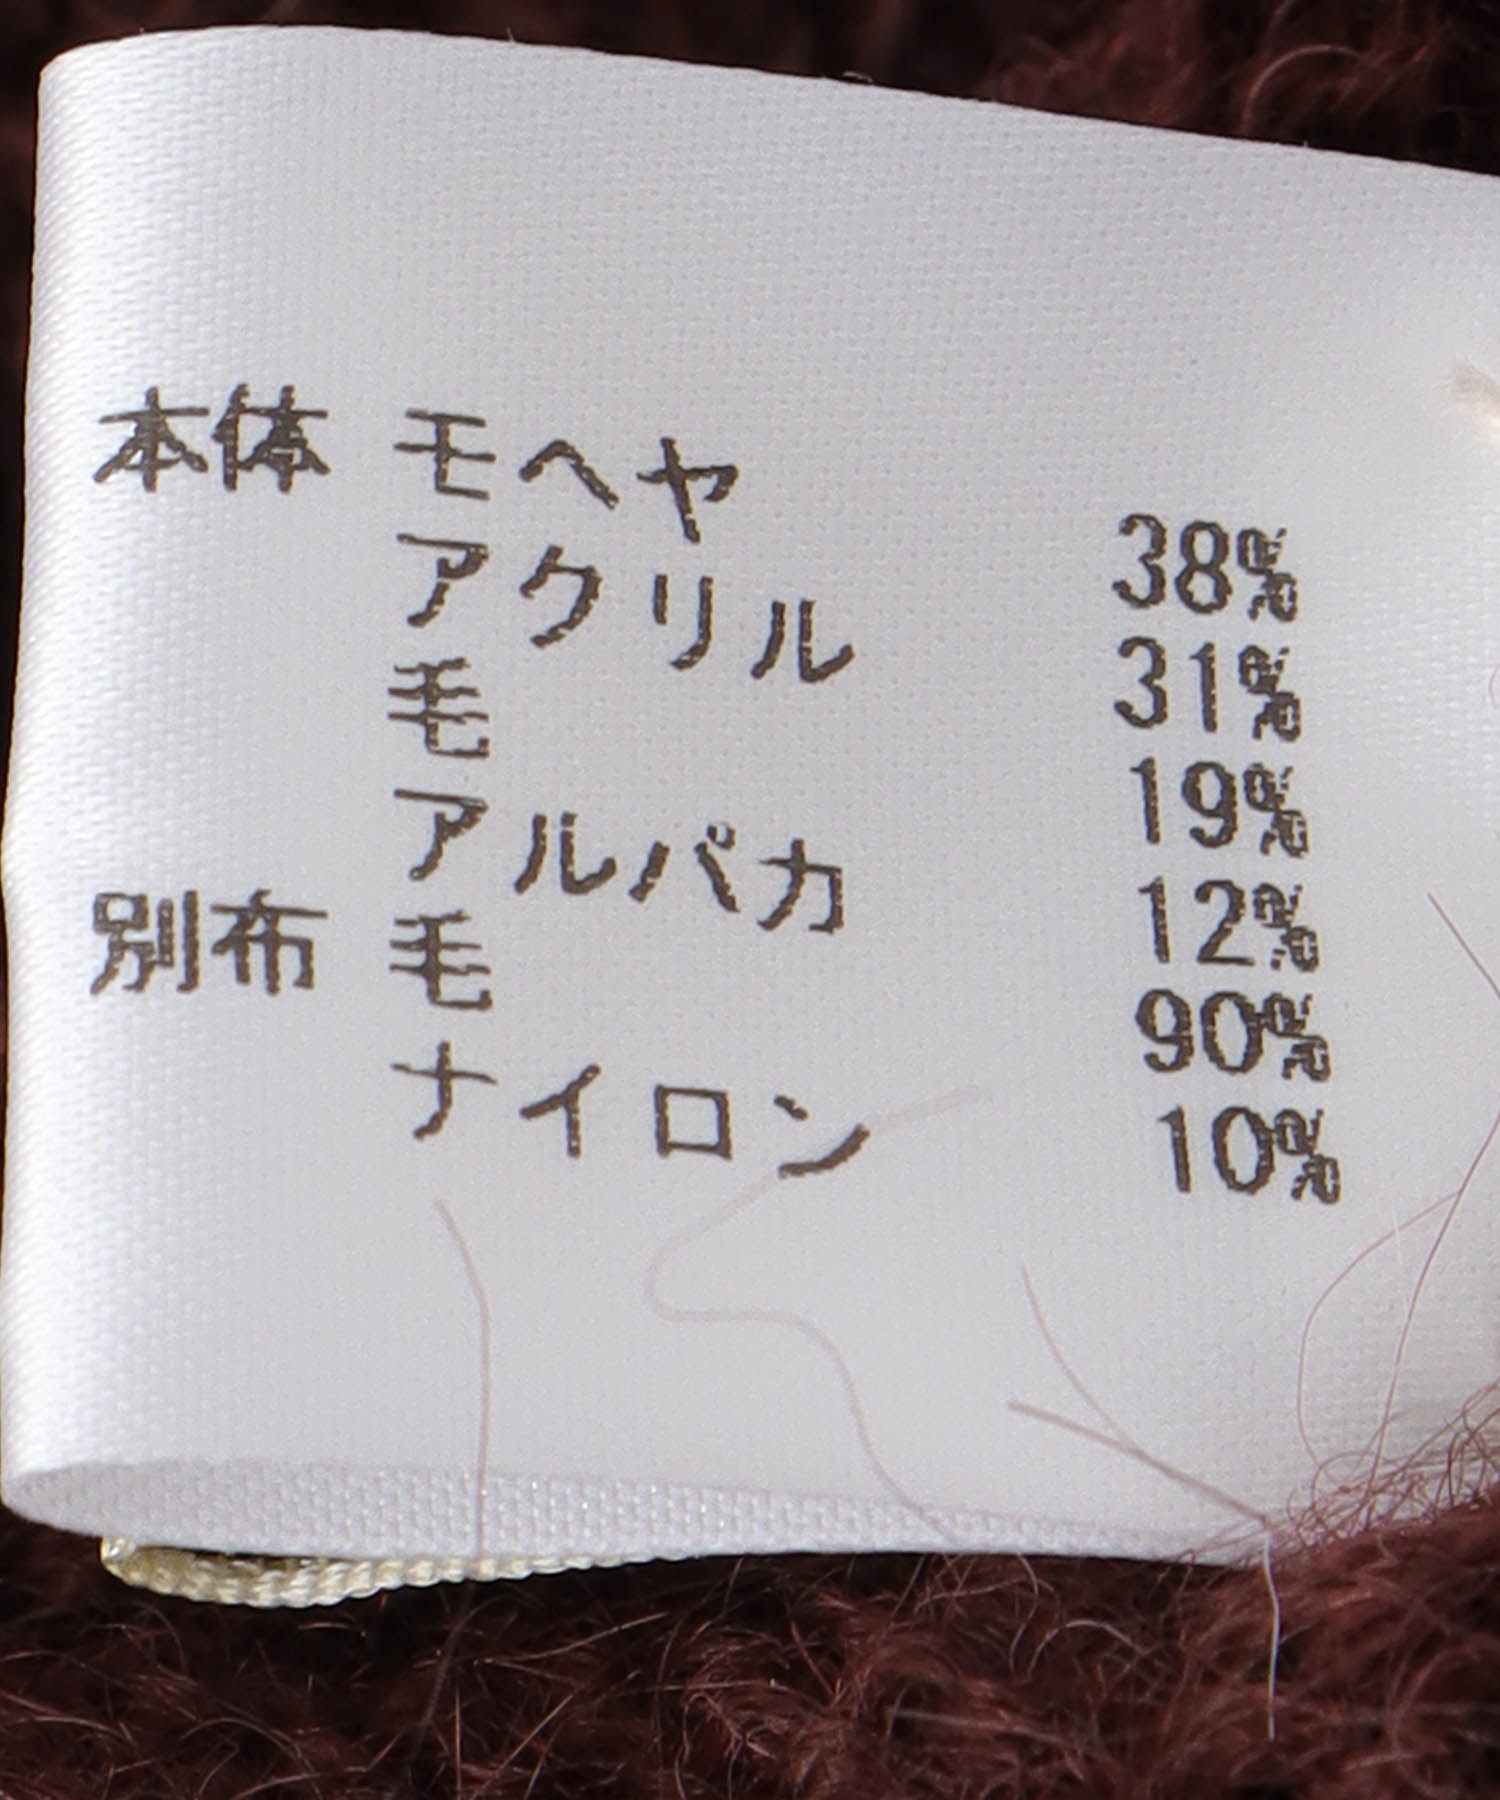 本体 モヘヤ 38%
アクリル 31%
毛 19%
アルパカ 12%
別布 毛 90%
ナイロン 10%